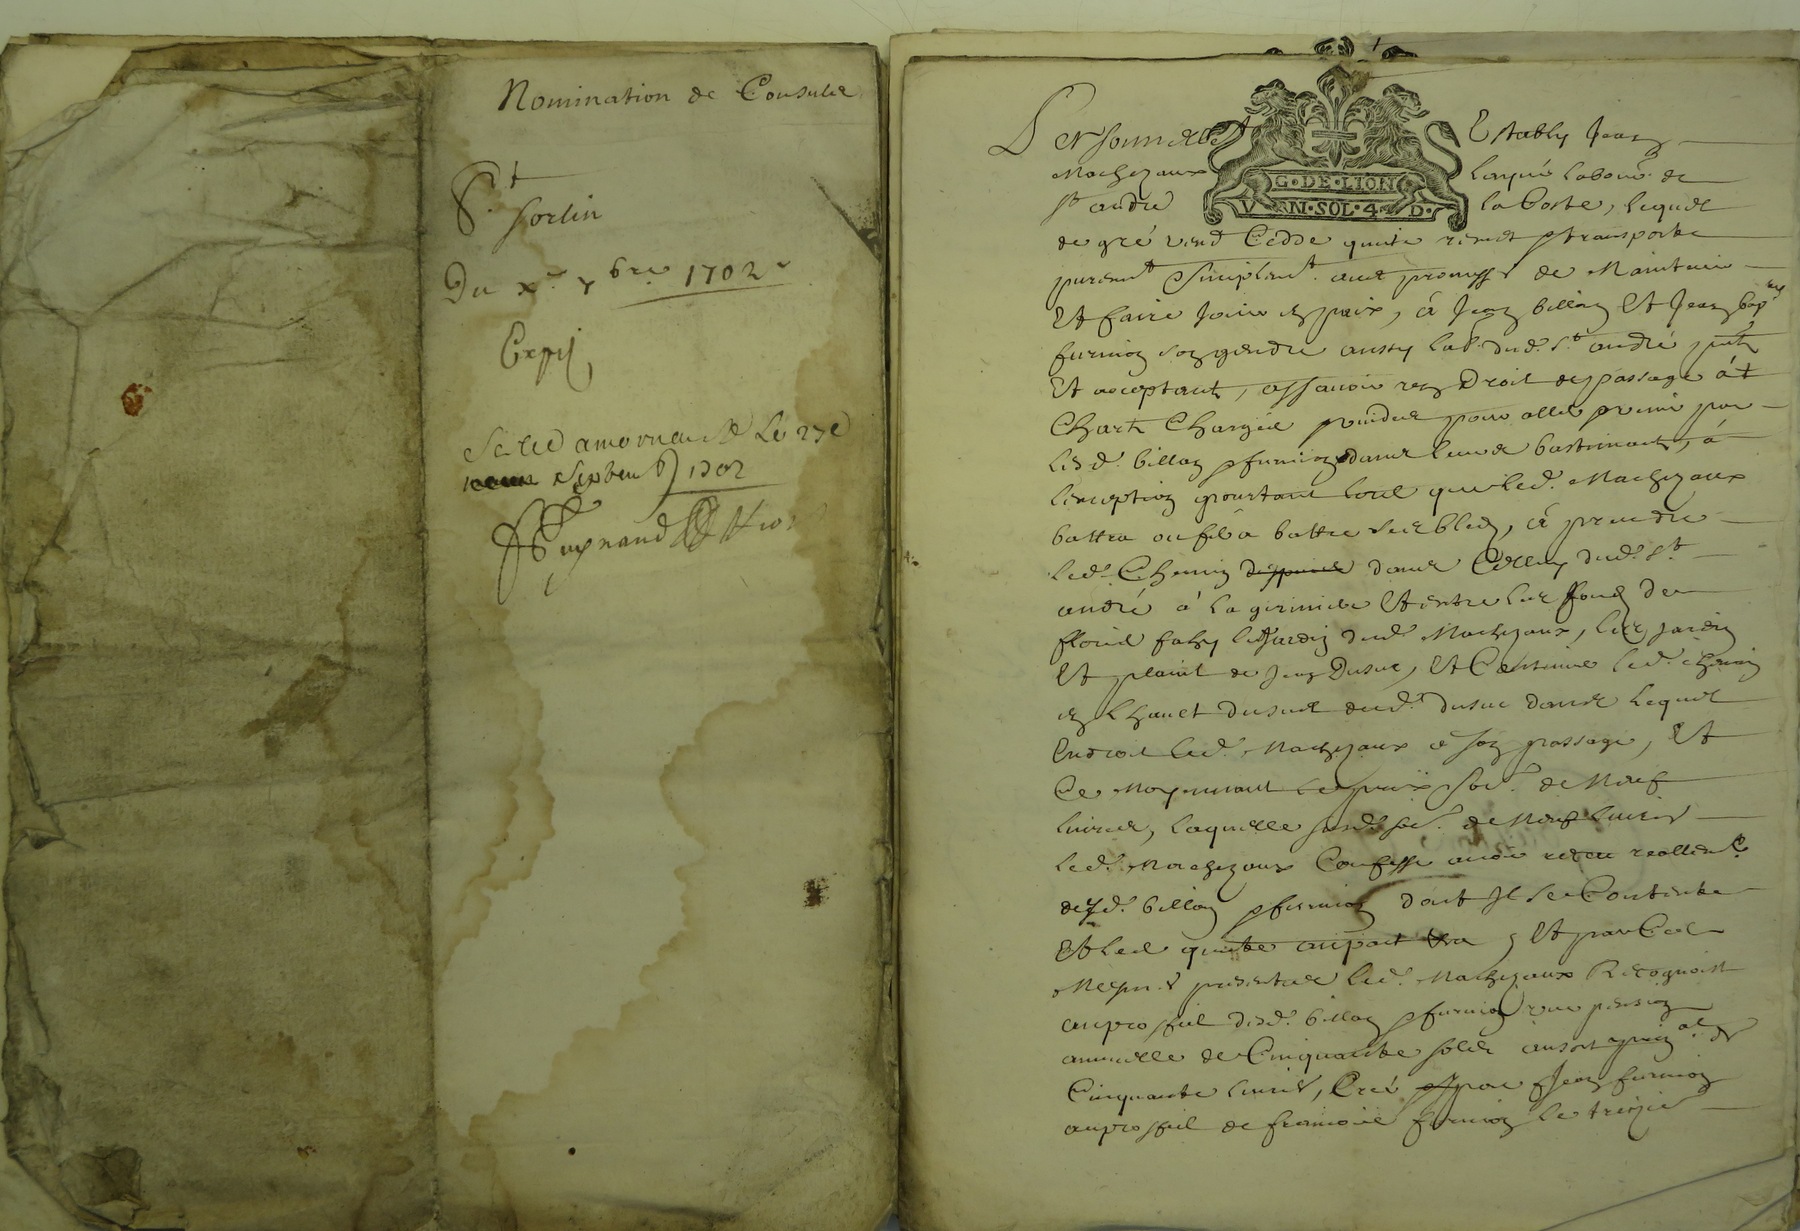 Nomination de Consulz
St
sorlin
Du xe 7bre 1702
Expt
Scellé a mornant le 27e
septemb 1702
G·DE·LION
VN·SOL·4·D·
Personnellet Estably Jean
Machizaux laisné labour. de
st andré la Coste, lequel
de gré vend Cedde quitte remet et transporte
puremt et simplemt. avec promesse de Maintenir
Et faire Jouir en paix, a Jean billon Et Jean bapte
furnion son gendre aussy lab. dud. st andré pnts
Et acceptant, assavoir un Droit de passage a
Chart Chargée pour aller
lesd. billon et furnion dans leurs bastiments, a
lexception pourtant lors que led. Machizaux
battra ou fera battre ses bledz, a prendre
led. Chemin dans dud. st
andré a la Et entre les fonds de
le Jardin dud. Machizaux, les jardin
Et plaint de Jean Dusuc, Et Continue led. chemin
dud. dusuc dans lequel
Endroit led. Machizaux a son passage, Et
Ce Moyennant le prix et so.e de Neuf
livres, laquelle susd. so.e de Neuf livres
led. Machizaux Confesse avoir receu reellemt.
desd. billon et furnion dont Il se Contente
Et les quitte, Et par Ces
Mesmes presentes led. Machizaux Recognoist
au proffit desd. billon et furnion une pension
annuelle de Cinquante solz au sort prinal de
Cinquante livres, Créé par Jean furnion
au proffit de francois furnion le treizie